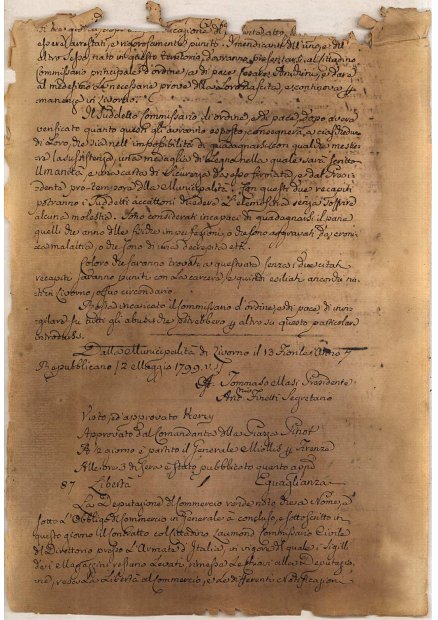 essere arrestati, e rigorosamente puniti. I mendicanti dell'uno, e dell'
altro sesso nati in questo territorio dovranno presentarsi al Cittadino
Commissario principale d'ordine, e di pace e dare
al medesimo le necessarie prove della loro nascita, e continova per-
manenza in Livorno.
Il suddetto Commissario d'ordine, e di pace dopo avere
verificato quanto questi gli avranno esposto, consegnerà a ciascheduno
di loro, che sia nell'impossibilità di guadagnarsi con qualche mestie-
re la sussistenza, una medaglia di legno nella quale sarà scritto
Umanità e una carta di sicurezza da esso firmata, e dal Presi-
dente pro tempore della Municipalità. Con questi due recapiti
potranno i suddetti accattoni chiedere l'elemosina senza soffrire
alcuna molestia. Sono considerati incapaci di guadagnarsi il pane
quelli che anno delle fisiche imperfezioni, o che sono aggravati da cronica
malattia, o che sono di una decrepita età.
Coloro che saranno trovati a questuare senza i due citati
recapiti saranno puniti con la carcere, e quindi esiliati ancorchè na-
ti in Livorno, o suo circondario.
Resta incaricato il Commissario d'ordine, e di pace di invi-
gilare su tutti gli abusi che potrebbero per altro su questo particolare
introdursi.
Dalla Municipalità di Livorno il 13 Fiorile Anno 7
Repubblicano (2 Maggio 1799. v. s.)
Tommaso Masi Presidente
Ant. Finetti Segretario
Visto, ed approvato
Approvato dal Comandante della Piazza
A' 2 giorno è partito il Generale Miollis per Firenze
Alle ore 3 di sera è stato pubblicato quanto app.
87 Libertà Eguaglianza
La Deputazione di Commercio rende noto che a nome, e
sotto l'obbligo del Commercio in Generale à concluso, e sottoscritto in
questo giorno il Contratto col Cittadino Laumond Commissario Civile
del Direttorio presso l'Armata d'Italia, in vigore del quale i Sigilli
dei Magazzini restano levati, rimesse le chiavi alla Deputazio-
ne, resa la Libertà al Commercio, e le differenti Notificazioni